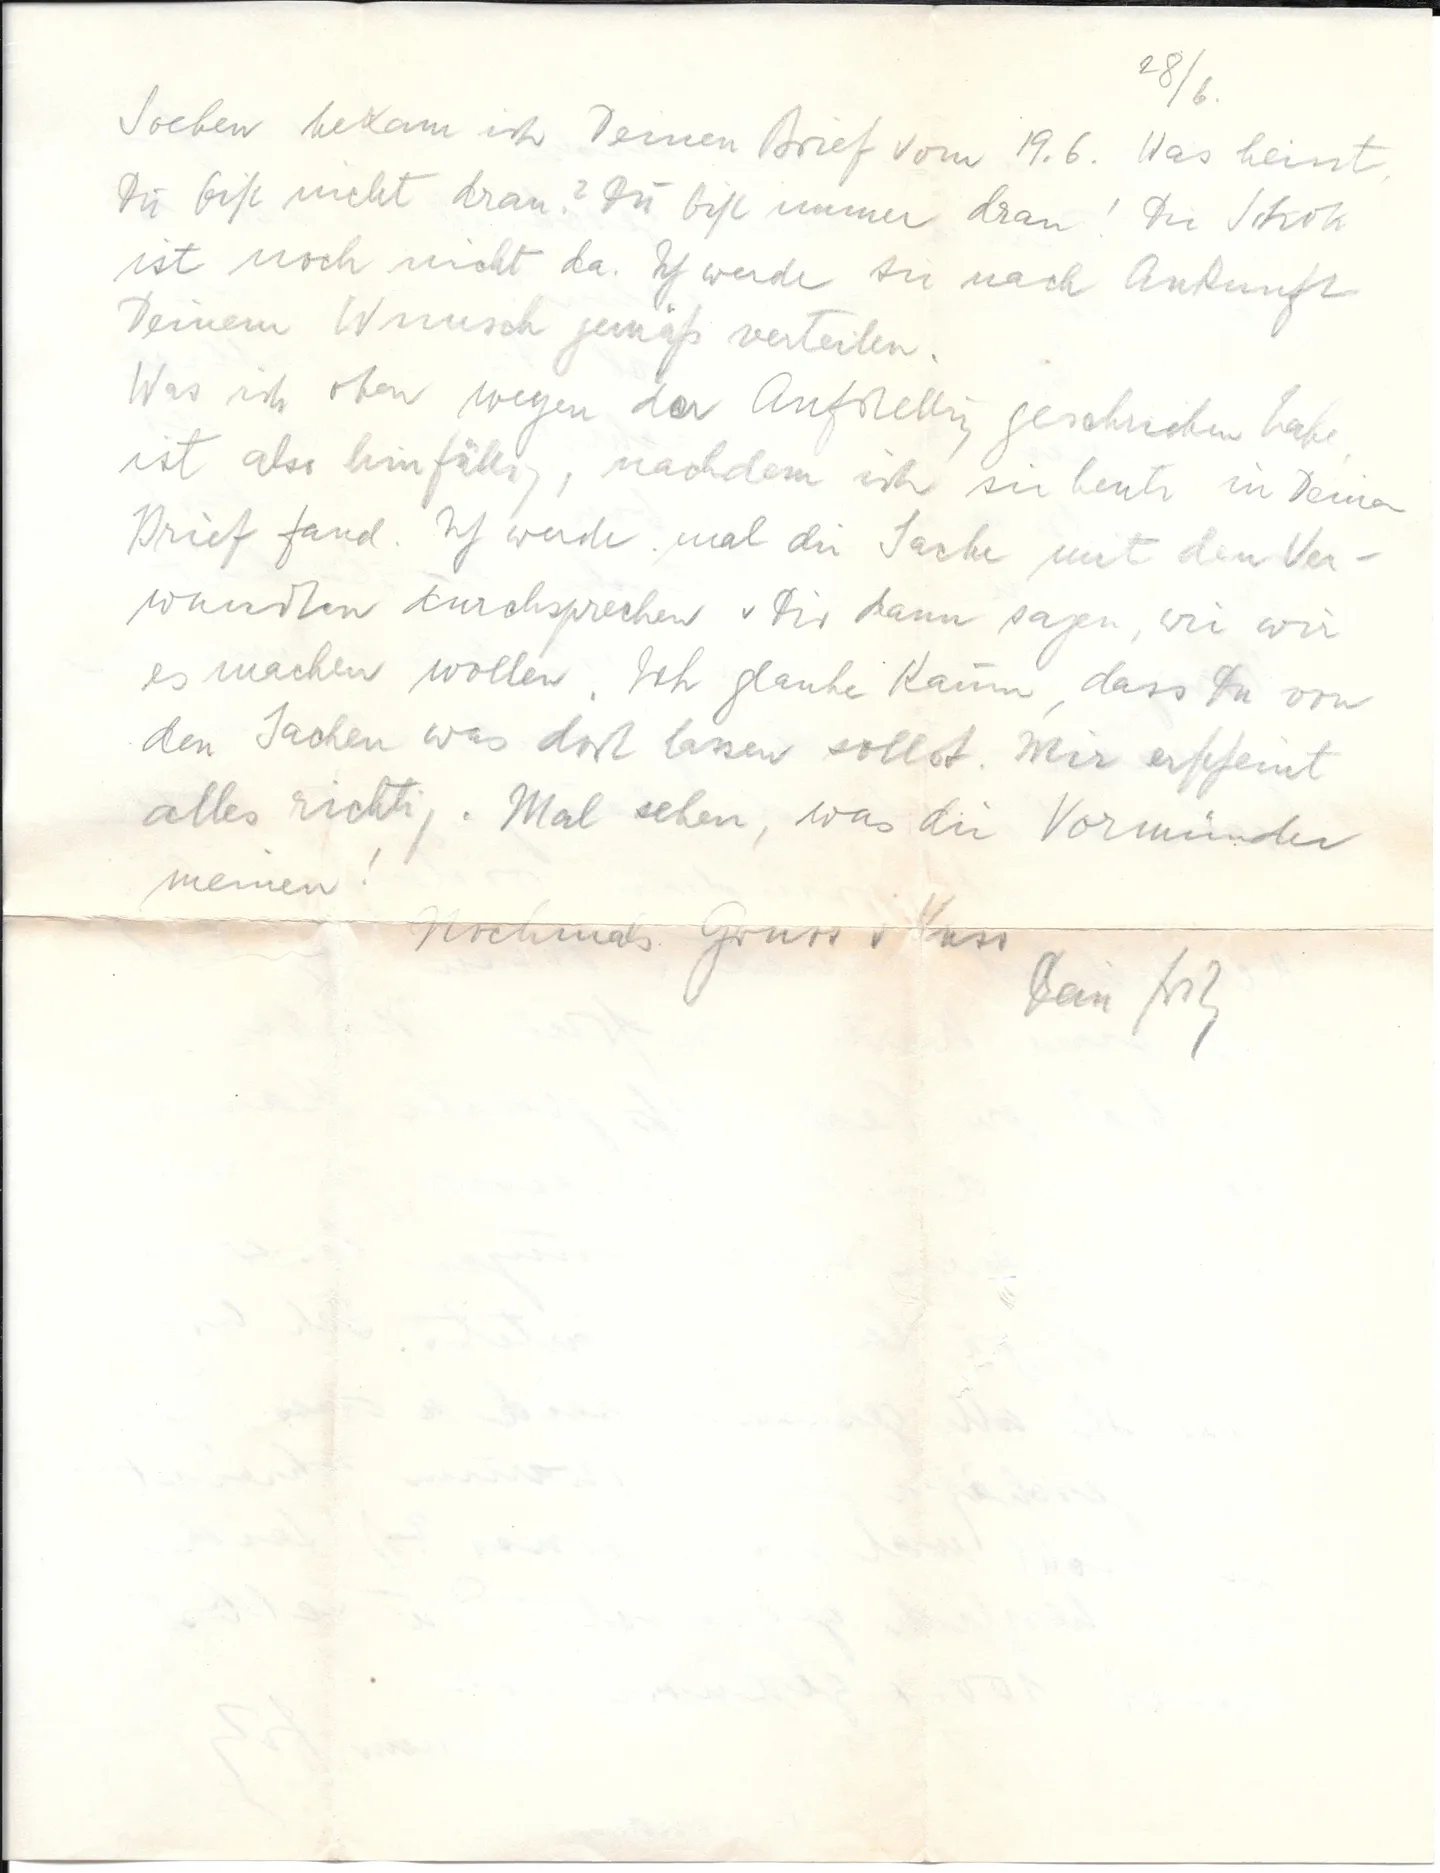 28/6.
Soeben bekam ich Deinen Brief vom 19.6. Was heisst,
Du bist nicht dran? Du bist immer dran! Die Schok
ist noch nicht da. Ich werde sie nach Ankunft
Deinem Wunsch gemäß verteilen.
Was ich oben wegen der Aufstellung geschrieben habe,
ist also hinfällig, nachdem ich sie heute in Deinem
Brief fand. Ich werde mal die Sache mit den Ver-
wandten durchsprechen u Dir dann sagen, wie wir
es machen wollen. Ich glaube kaum, dass Du von
den Sachen was dort lassen sollst. Mir erscheint
alles richtig. Mal sehen, was die Vormünder
meinen!
Nochmals Gruss u Kuss
Dein Fritz